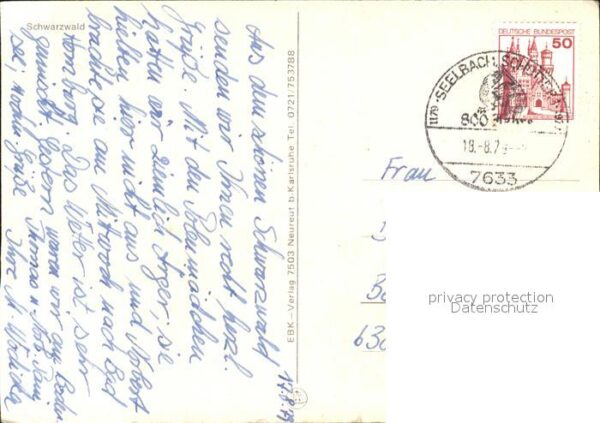 Schwarzwald
17.8.79
Aus dem schönen Schwarzwald
senden wir Ihnen recht herzl.
Grüße. Mit den Polenmädchen
hatten wir ziemlich Ärger, sie
hielten hier nicht aus und Norbert
brachte sie am Mittwoch nach Bad
Homburg. Das Wetter ist sehr
gemischt. Gestern waren wir am Boden-
see, noch Grüße Thomas u.
Ihre M.
EBK - Verlag 7503 Neureut b. Karlsruhe Tel. 0721/753788
DEUTSCHE BUNDESPOST
50
1179 SEELBACH, SCHUTTERTAL 1979
800 Jahre
18.-8.79
7633
Frau
630
privacy protection
Datenschutz